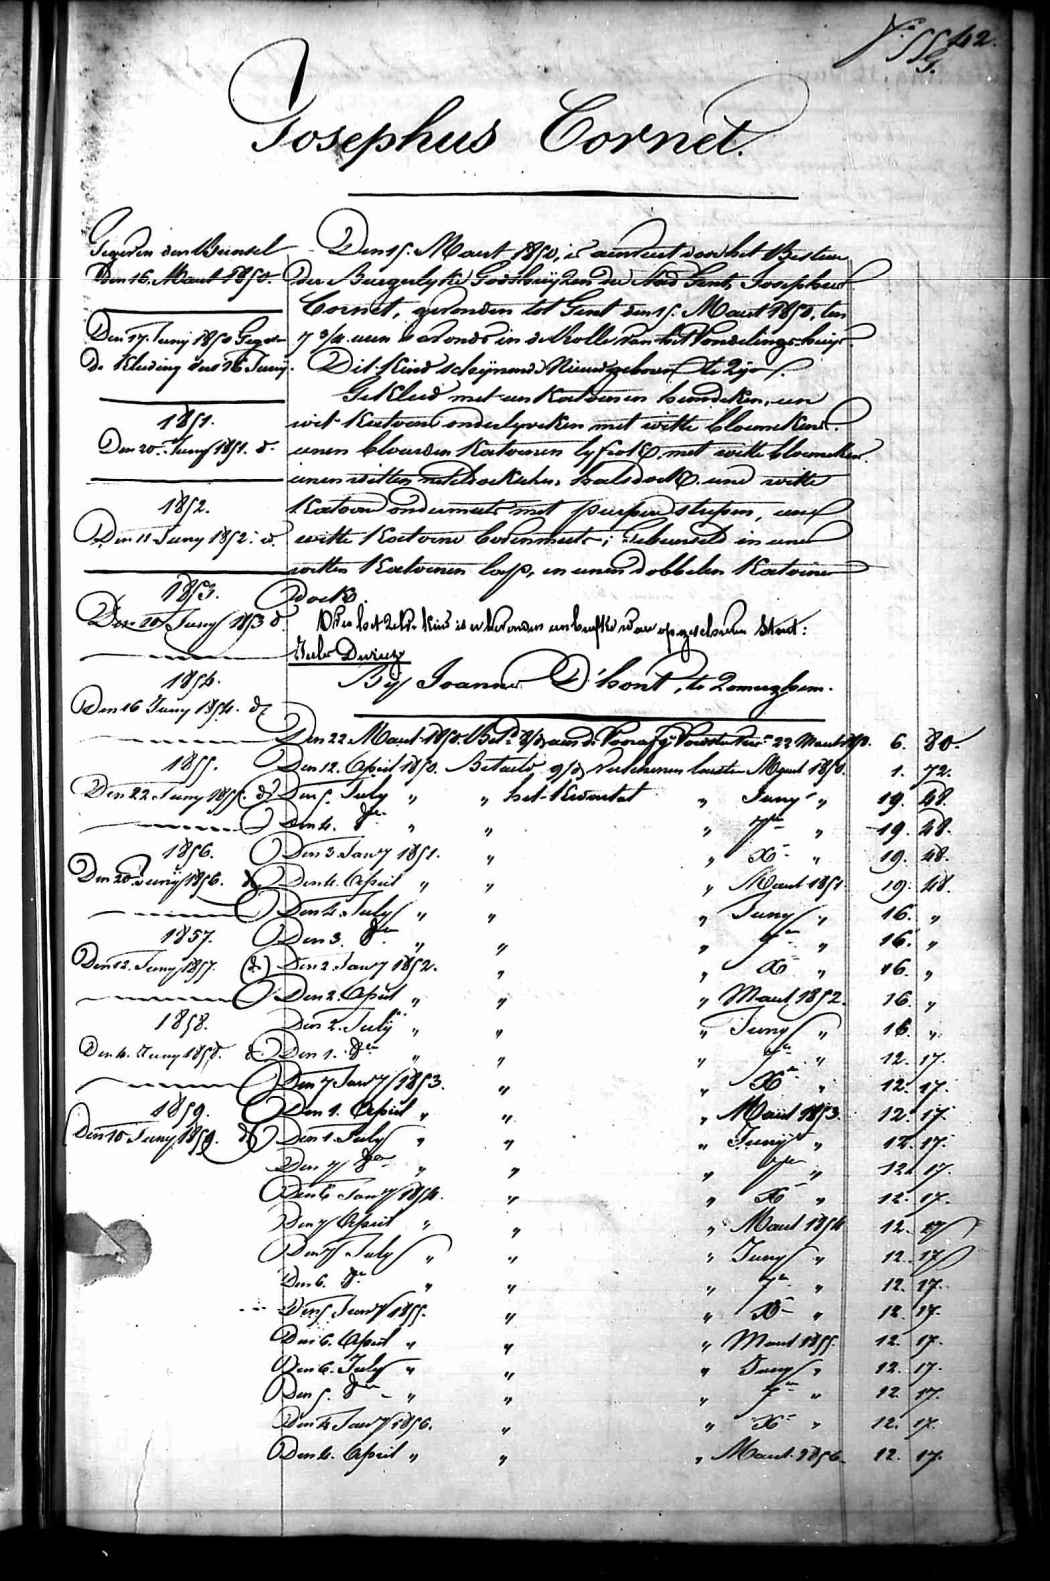 42.
Josephus Cornet.
Gegeven den Bunsel
Den 16. Maart 1850.
Den 17. Juny 1850 Gegev.
de Kleeding
1851.
Den 20. Juny 1851. d.
1852.
Den 11 Juny 1852. d.
1853.
Den 10 Juny 1853 d.
1854.
Den 16 Juny 1854. d.
1855.
Den 22. Juny 1855. d.
1856.
Den 20. Juny 1856.
1857.
Den 12. Juny 1857. d.
1858.
Den 4. Juny 1858. d.
1859.
Den 10 Juny 1859. d.
Den 15. Maart 1850, is aenveert door het Bestier
der Burgerlyke Godshuyzen der Stad Gent, Josephus
Cornet, gevonden tot Gent den 15. Maart 1850, ten
7 3/4 uren s'avonds in de Rolle van het Vondelinge-huys
Dit Kind schynende Nieuwgeboren te zyn.
Gekleed met een Katoenen hemdeken, een
wit Katoene onderlyveken met witte bloemekens.
eenen blauwen Katoenen lyfrok, met witte bloemeken
eenen witten neteldoeken halsdoek, eene witte
Katoene ondermuts met purpere strepen, eene
witte Katoene bovenmuts; Gebunseld in eene
witten Katoenen lap, en eenen dobbelen Katoene
doek.
By Joanna D'hont, te Zomerghem.
Den 22 Maart 1850. 22 Maart 1850. 6. 80.
Den 12. April 1850. Betaeld Maart 1850. 1. 72.
Den 5. July " " het Kwartal " Juny " 19. 48.
Den 4. 8er " " " 7er " 19. 48.
Den 3 Jany 1851. " " X " 19. 48.
Den 4. April " " " Maart 1851 19. 48.
Den 4. July " " " Juny " 16. "
Den 3. 8er " " " 7er " 16. "
Den 2 Jany 1852. " " X " 16. "
Den 2. April " " " Maart 1852. 16. "
Den 2. July " " " Juny " 16. "
Den 1. 8er " " " 7er " 12. 17.
Den 7 Jany 1853. " " X " 12. 17.
Den 1. April " " " Maart 1853. 12. 17.
Den 1. July " " " Juny " 12. 17.
Den 7 8er " " " 7er " 12. 17.
Den 6 Jany 1854. " " X " 12. 17.
Den 7 April " " " Maart 1854 12. 17
Den 7 July " " " Juny " 12. 17
Den 6. 8er " " " 7er " 12. 17.
Den 5. Jany 1855. " " X " 12. 17.
Den 6. April " " " Maart 1855. 12. 17.
Den 6. July " " " Juny " 12. 17.
Den 5. 8er " " " 7er " 12. 17.
Den 4 Jany 1856. " " X " 12. 17.
Den 4. April " " " Maart 1856. 12. 17.